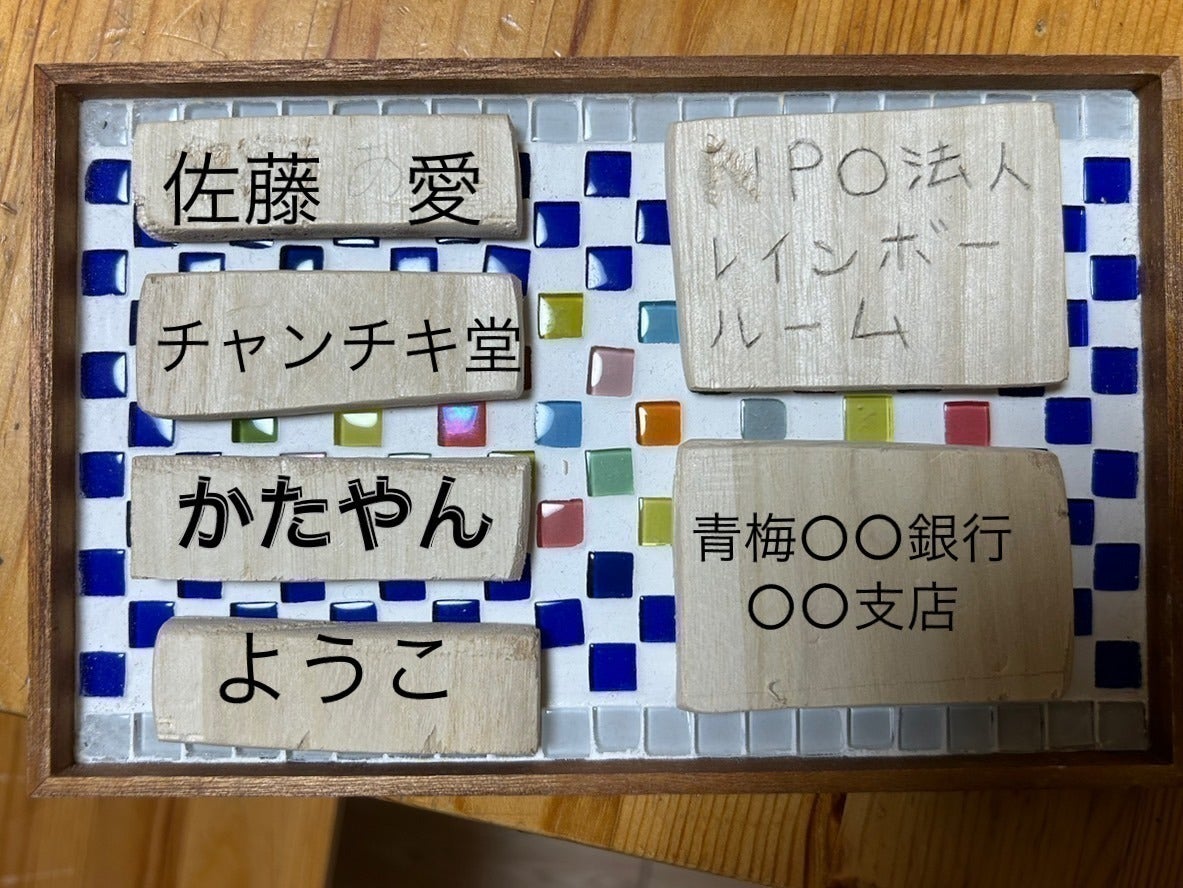 佐藤　愛
チャンチキ堂
かたやん
ようこ
NPO法人
レインボー
ルーム
青梅〇〇銀行
〇〇支店